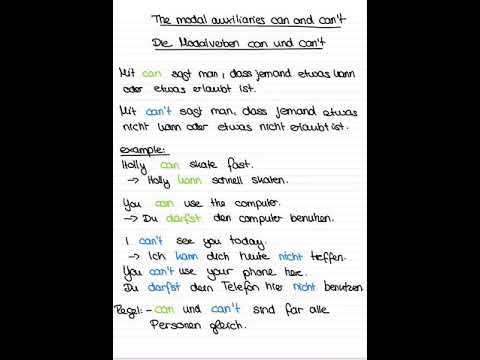 The modal auxiliaries can and can't
Die Modalverben can und can't
Mit can sagt man, dass jemand etwas kann
oder etwas erlaubt ist.
Mit can't sagt man, dass jemand etwas
nicht kann oder etwas nicht erlaubt ist.
example:
Holly can skate fast.
→ Holly kann schnell skaten.
You can use the computer.
→ Du darfst den computer benutzen.
I can't see you today.
→ Ich kann dich heute nicht treffen.
You can't use your phone here.
Du darfst dein Telefon hier nicht benutzen
Regel: - can und can't sind für alle
Personen gleich.